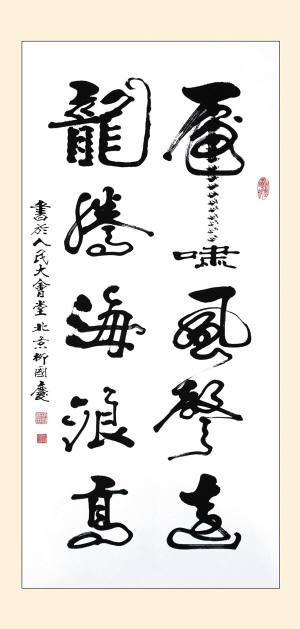 虎嘯風聲遠
龍騰海浪高
書於人民大會堂 北京柳國慶